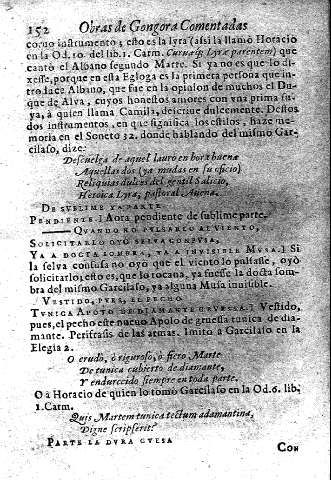 152 Obras de Gongora Comentadas
como instrumento; esto es la lyra (assi la llamò Horacio
en la Od. 10. del lib. 1. Carm. Curuæq; Lyræ parentem) que
cantò el Albano segundo Marte. Si ya no es que lo di-
xesse, porque en esta Egloga es la primera persona que in-
troduce Albano, que fue en la opinion de muchos el Du-
que de Alva, cuyos honestos amores con vna prima su-
ya, à quien llama Camila, descriue dulcemente. Destos
dos instrumentos, en que significa los estilos, haze me-
moria en el Soneto 32. donde hablando del mismo Garci-
lasso, dize:
Descuelga de aquel lauro en hora buena
Aquellas dos (ya mudas en su oficio)
Reliquias dulces del gentil Salicio,
Heroica Lyra, pastoral Auena.
DE SVBLIME YA PARTE
PENDIENTE.] Aora pendiente de sublime parte.
QUANDO NO PVLSARLO AL VIENTO,
SOLICITARLO OYÒ SELVA CONFVSA,
YA A DOCTA SOMBRA, YA A INVISIBLE MVSA.] Si
la selva confusa no oyò que el viento lo pulsasse, oyò
solicitarlo, esto es, que lo tocana, ya fuesse la docta som-
bra del mismo Garcilaso, ya alguna Musa inuisible.
VESTIDO, PVES, EL PECHO
TVNICA APOLO DE DIAMANTE GRVESSA.] Vestido,
pues, el pecho este nueuo Apolo de gruessa tunica de dia-
mante. Perifrasis de las armas. Imitò à Garcilaso en la
Elegia 2.
O crudo, ò riguroso, ò fiero Marte
De tunica cubierto de diamante,
Y endurecido siempre en toda parte.
O à Horacio de quien lo tomò Garcilaso en la Od. 6. lib.
1. Carm.
Quis Martem tunica tectum adamantina,
Digne scripserit?
PARTE LA DVRA GVESA
Con